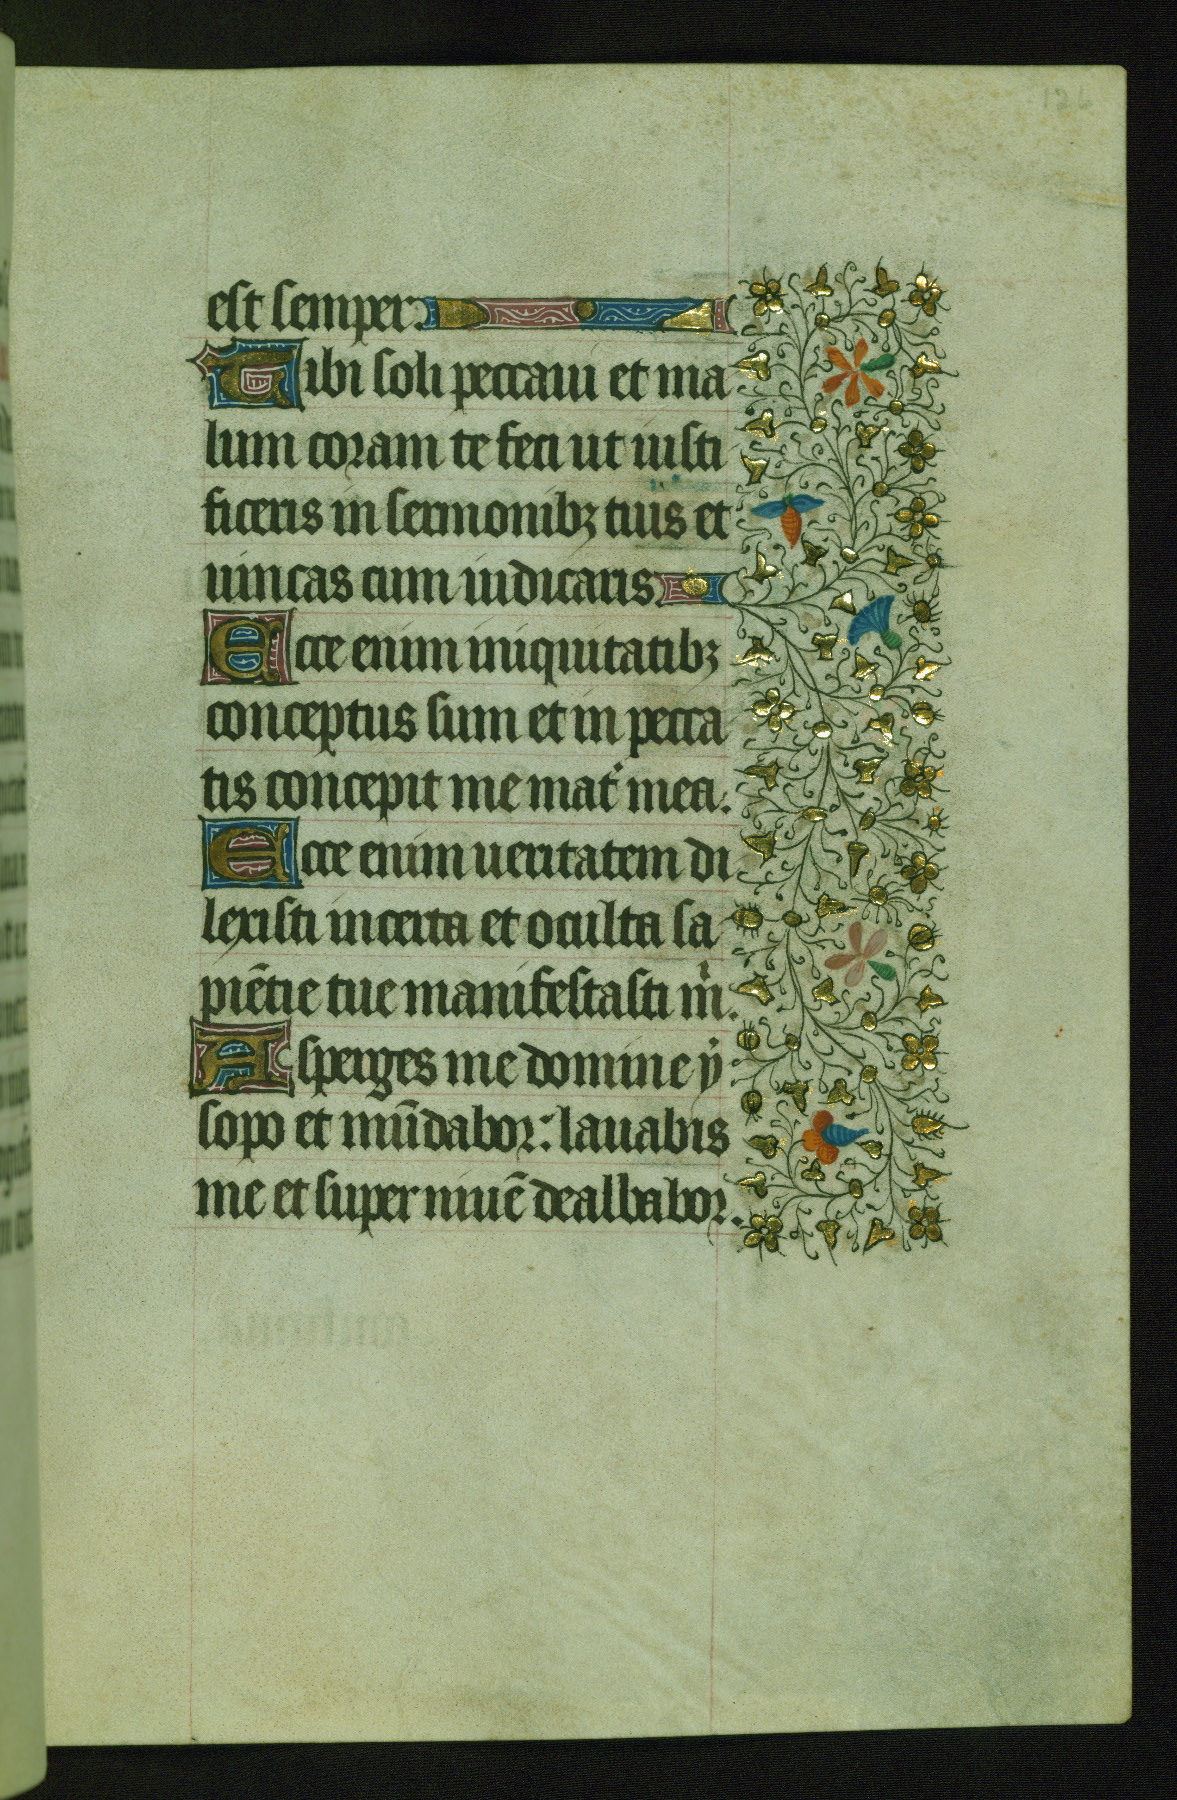 126
est semper.
Tibi soli peccaui et ma
lum coram te feci ut iusti
ficeris in sermonibꝫ tuis et
uincas cum iudicaris.
Ecce enim iniquitatibꝫ
conceptus sum et in pecca
tis concepit me mat͛ mea.
Ecce enim ueritatem di
lexisti incerta et oculta sa
piētie tue manifestasti m̍.
Asperges me domine ẏ
sopo et mūdabor: lauabis
me et super niuē dealbabor.